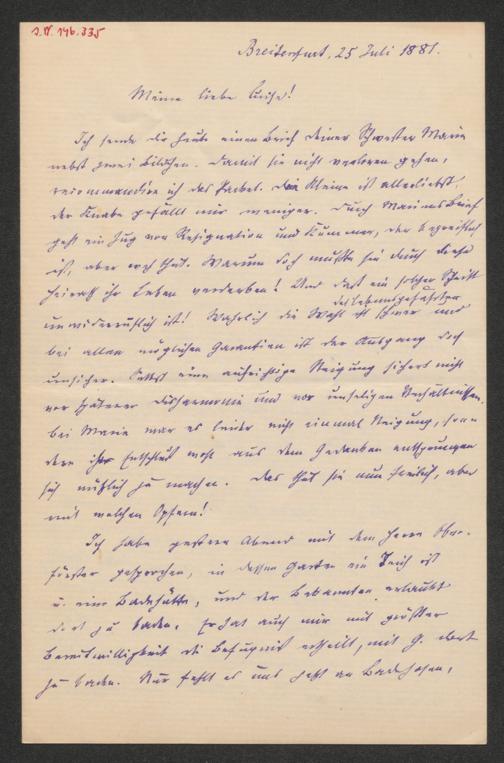 I.N. 146.335
Breitenfurt, 25 Juli 1881.
Meine liebe Luise!
Ich sende dir heute einen Brief deiner Schwester Marie
nebst zwei Bildchen. Damit sie nicht verloren gehen,
recommandire ich das Packet. Die Kleine ist allerliebst,
der Knabe gefällt mir weniger. Durch Mariens Brief
geht ein Zug von Resignation und Kummer, der begreiflich
ist, aber weh thut. Warum doch mußte sie durch diese
Heirath ihr Leben verderben! Und daß ein solcher Schritt
unwiderruflich ist! Wahrlich die Wahl des Lebensgefährten ist schwer und
bei allen möglichen Garantien ist der Ausgang doch
unsicher. Selbst eine aufrichtige Neigung sichert nicht
vor späterer Disharmonie und vor unseligen Verhältnissen.
Bei Marie war es leider nicht einmal Neigung, son-
dern ihr Entschluß wohl aus dem Gedanken entsprungen
sich nützlich zu machen. Das thut sie nun freilich, aber
mit welchen Opfern!
Ich habe gestern Abend mit dem Herrn Ober-
förster gesprochen, in dessen Garten ein Teich ist
u. eine Badehütte, und der Bekannten erlaubt
dort zu baden. Er hat auch mir mit größter
Bereitwilligkeit die Befugniß ertheilt, mit G. dort
zu baden. Nur fehlt es uns jetzt an Badehosen,